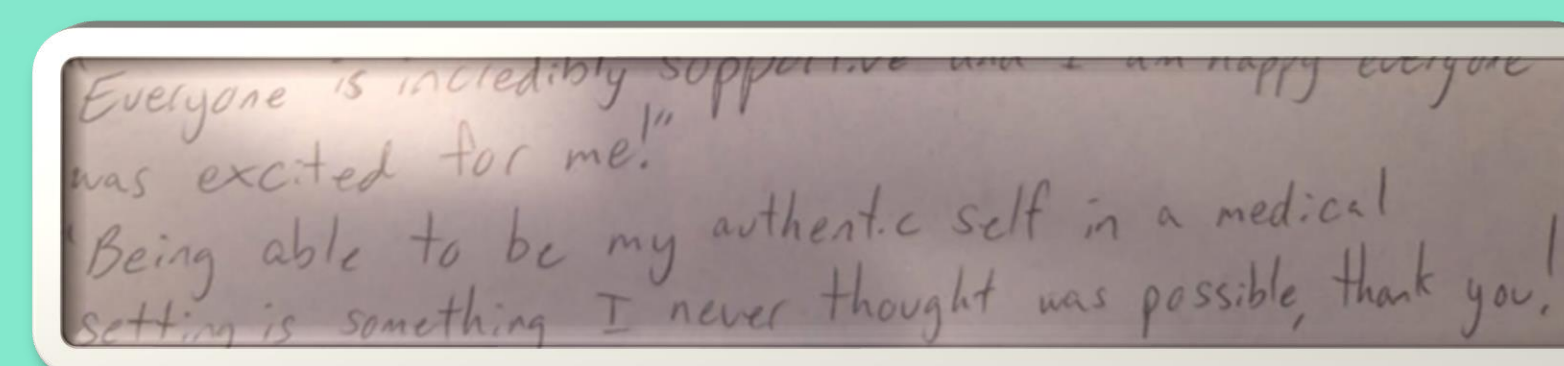 "Everyone is incredibly supportive and I am happy everyone
was excited for me!"
"Being able to be my authentic self in a medical
setting is something I never thought was possible, thank you!